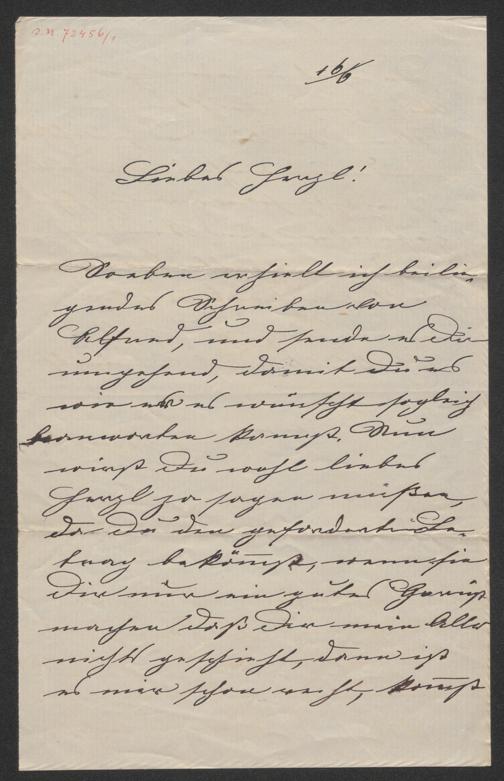 I.N. 72456/1
16/6
Liebes Herzl!
Soeben erhielt ich beilie-
gendes Schreiben von
Alfred, und sende es Dir
umgehend, damit Du es
wie er es wünscht sogleich
beanworten kannst. Nun
wirst Du wohl liebes
Herzl ja sagen müßen,
da Du den geforderten Be-
trag bekömmst, wenn sie
Dir nur ein gutes Gerüst
machen daß Dir mein Alles
nichts geschieht, dann ist
es mir schon recht, kömmst